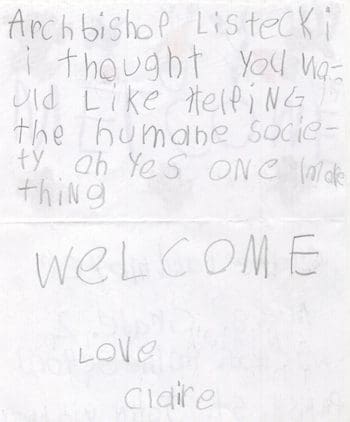 Archbishop Listecki
i thought you wo-
uld Like HeLpiNG
the humane socie-
ty oh Yes ONe more
thiNg
WeLCOME
Love
Claire